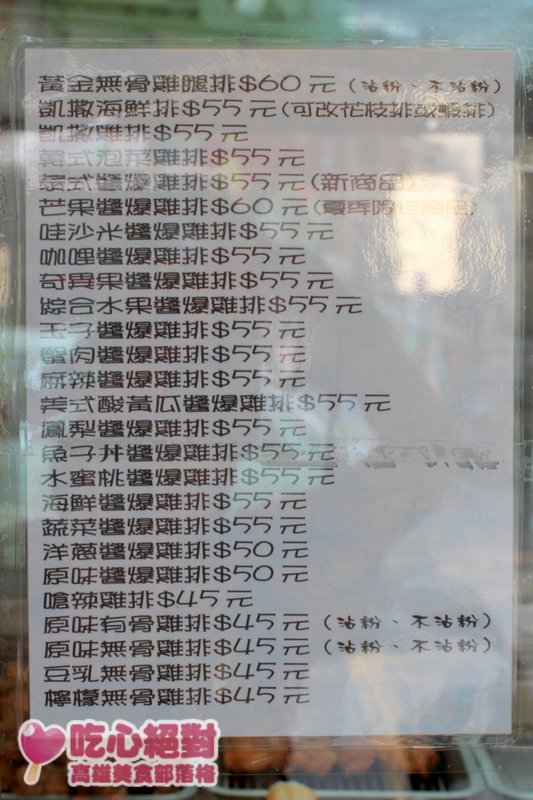 黃金無骨雞腿排$60元(沾粉、不沾粉)
凱撒海鮮排$55元(可改花枝排或蝦排)
凱撒雞排$55元
韓式泡菜雞排$55元
泰式醬爆雞排$55元(新商品)
芒果醬爆雞排$60元(夏季限定商品)
哇沙米醬爆雞排$55元
咖哩醬爆雞排$55元
奇異果醬爆雞排$55元
綜合水果醬爆雞排$55元
玉子醬爆雞排$55元
蟹肉醬爆雞排$55元
麻辣醬爆雞排$55元
美式酸黃瓜醬爆雞排$55元
鳳梨醬爆雞排$55元
魚子丼醬爆雞排$55元
水蜜桃醬爆雞排$55元
海鮮醬爆雞排$55元
蔬菜醬爆雞排$55元
洋蔥醬爆雞排$50元
原味醬爆雞排$50元
嗆辣雞排$45元
原味有骨雞排$45元(沾粉、不沾粉)
原味無骨雞排$45元(沾粉、不沾粉)
豆乳無骨雞排$45元
檸檬無骨雞排$45元
吃心絕對
高雄美食部落格